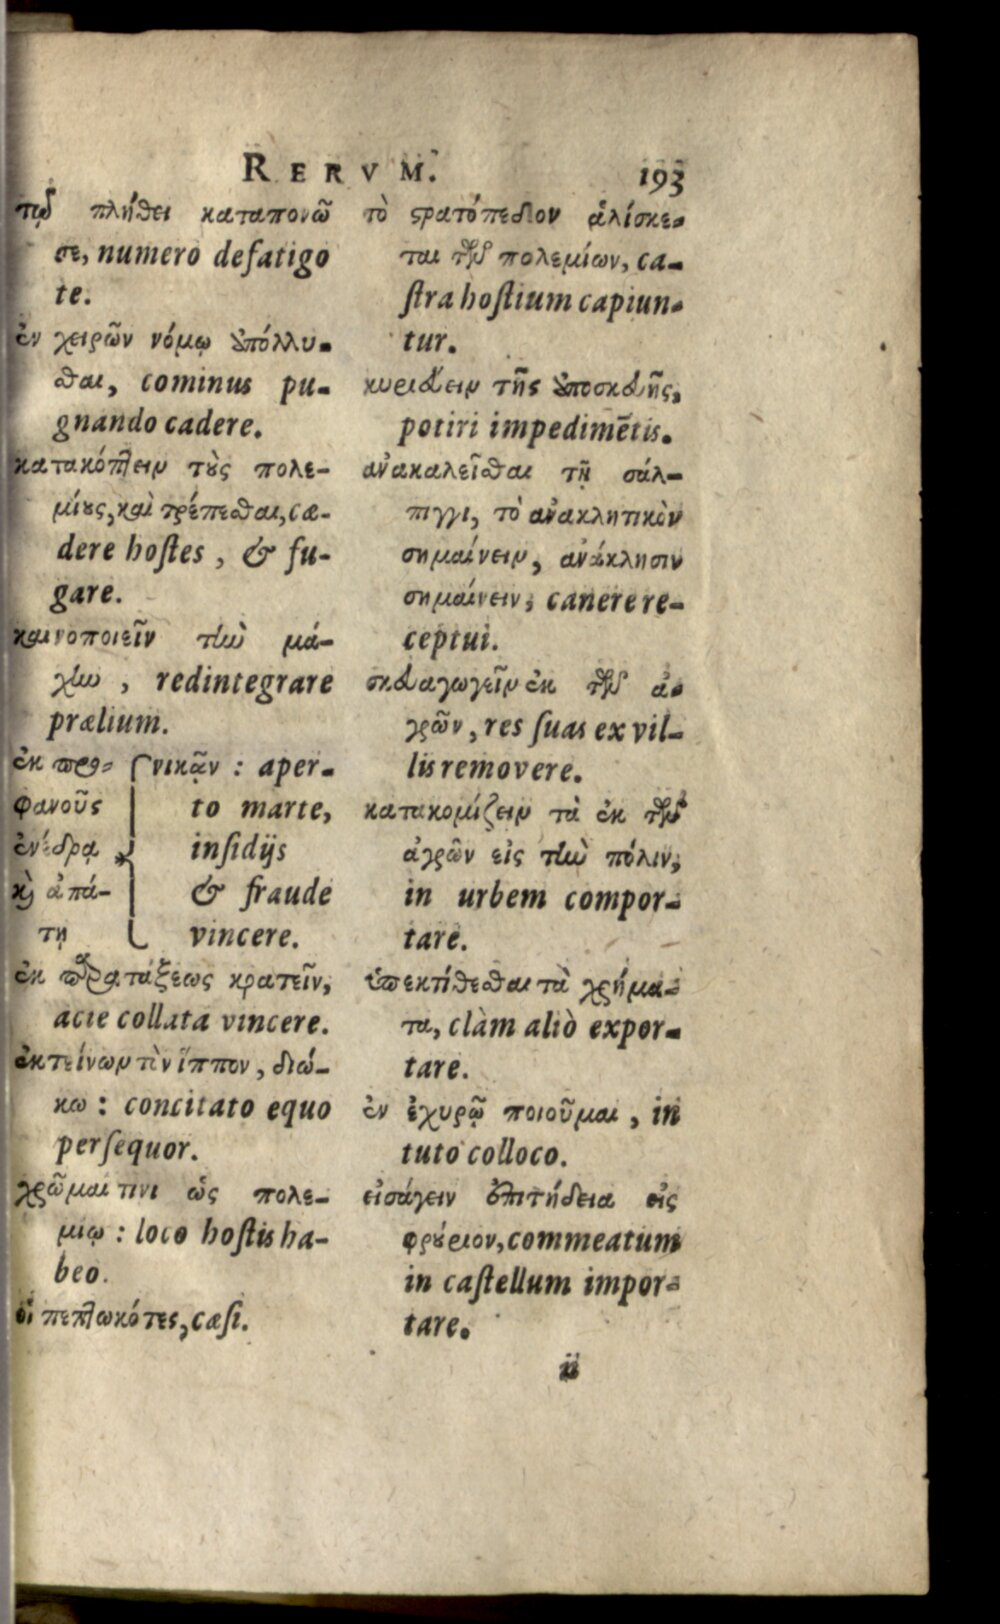 RERVM. 193
τῷ πλήθει καταπονῶ
σε, numero defatigo
te.
ἐν χειρῶν νόμῳ ἀπόλλυ-
σθαι, cominus pu-
gnando cadere.
κατακόπτειν τοὺς πολε-
μίους, καὶ τρέπεσθαι, cæ-
dere hoſtes, & fu-
gare.
καινοποιεῖν τὴν μά-
χην, redintegrare
prælium.
ἐκ προ- νικᾷν : aper-
φανοῦς to marte,
ἐνέδρᾳ inſidijs
κὶ ἀπά- & fraude
τῃ vincere.
ἐκ παρατάξεως κρατεῖν,
acie collata vincere.
ἐκτείνων τὸν ἵππον, διώ-
κω : concitato equo
perſequor.
χρῶμαί τινι ὡς πολε-
μίῳ : loco hoſtis ha-
beo.
οἱ πεπτωκότες, cæſi.
τὸ στρατόπεδον ἁλίσκε-
ται τῶν πολεμίων, ca-
ſtra hoſtium capiun-
tur.
κυριεύειν τῆς ἀποσκευῆς,
potiri impedimētis.
ἀνακαλεῖσθαι τῇ σάλ-
πιγγι, τὸ ἀνακλητικὸν
σημαίνειν, ἀνάκλησιν
σημαίνειν, canere re-
ceptui.
σκευαγωγεῖν ἐκ τῶν ἀ-
γρῶν, res ſuas ex vil-
lis removere.
κατακομίζειν τὰ ἐκ τῶν
ἀγρῶν εἰς τὴν πόλιν,
in urbem compor-
tare.
ὑπεκτίθεσθαι τὰ χρήμα-
τα, clàm aliò expor-
tare.
ἐν ἐχυρῷ ποιοῦμαι, in
tuto colloco.
εἰσάγειν ἐπιτήδεια εἰς
φρούριον, commeatum
in caſtellum impor-
tare.